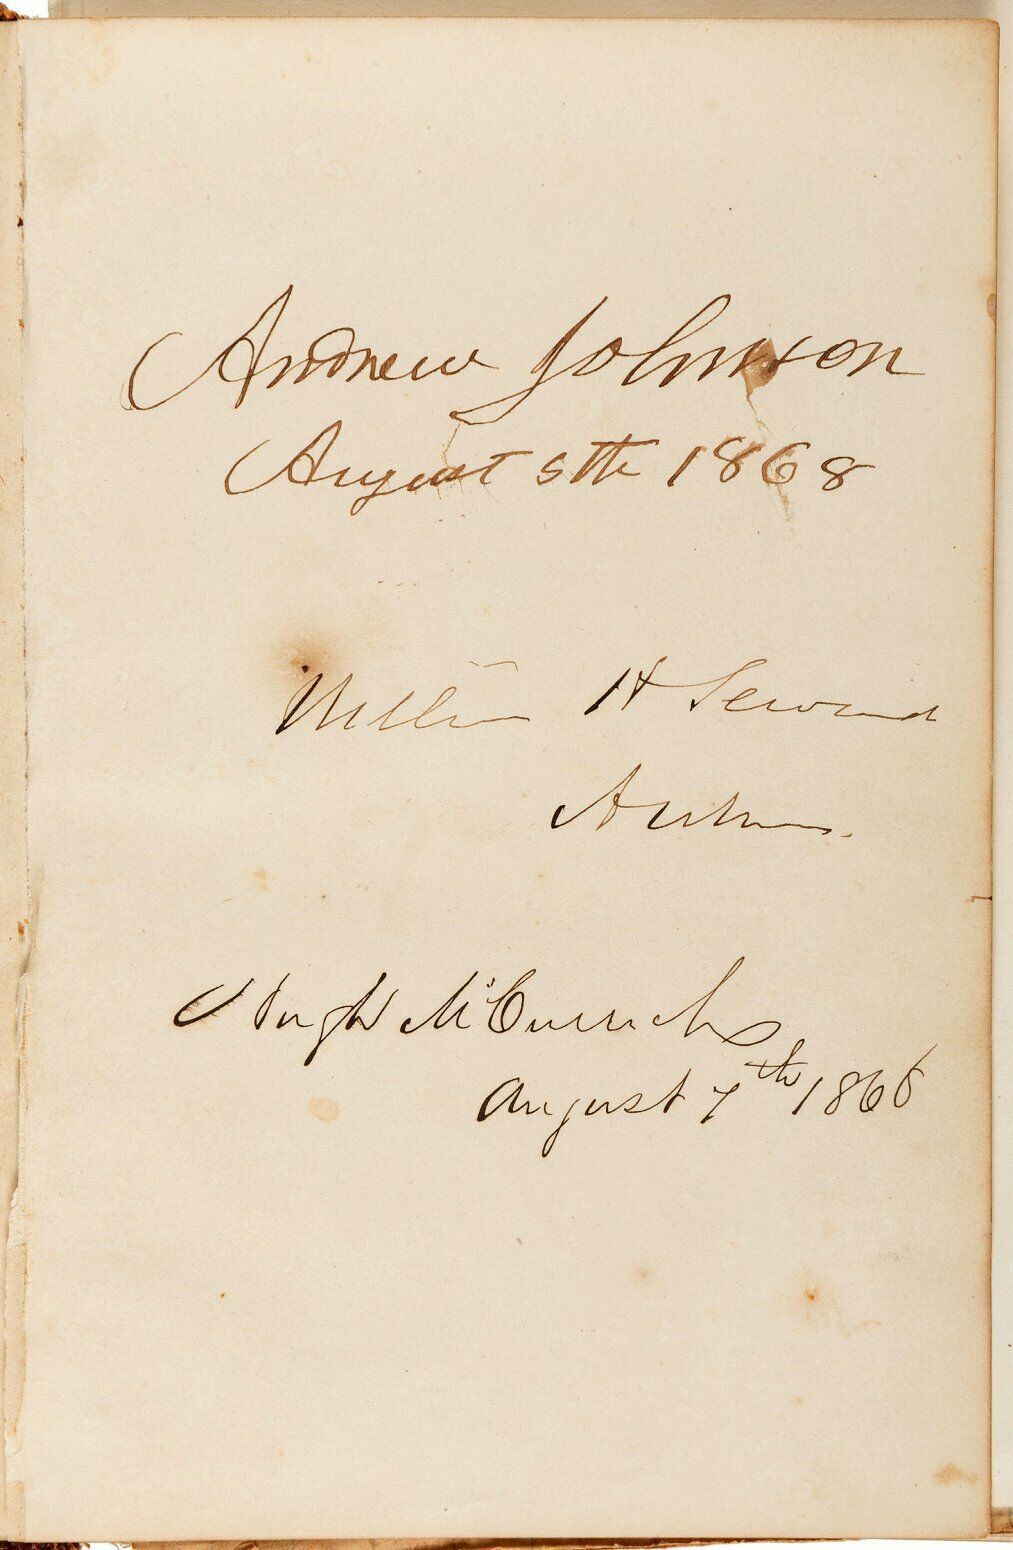 Andrew Johnson
August 5th 1868
William H Seward
Auburn.
Hugh McCulloch
August 7th 1868